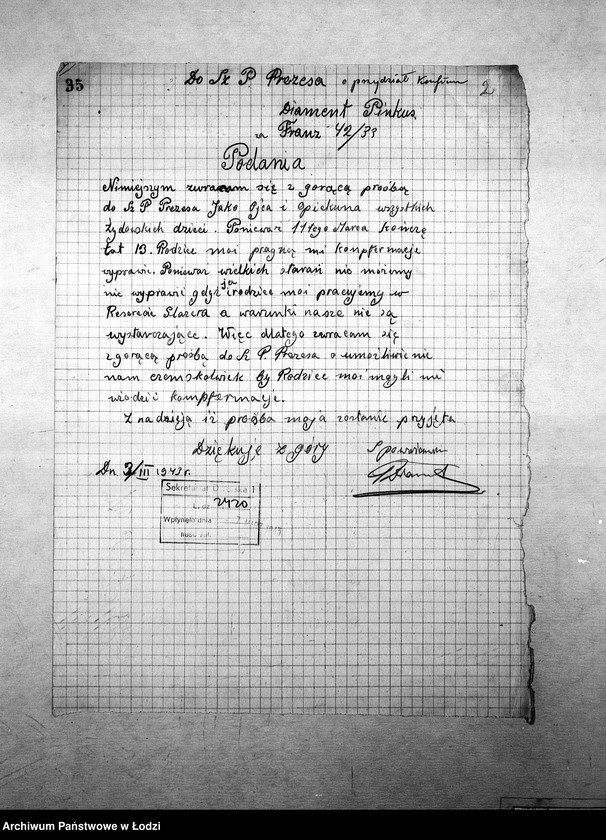 35
Do Sz P. Prezesa o przydział Konfirm
2
Diament Pinkus
za Franz 42/33
Podania
Niniejszym zwracam się z gorącą prośbą
do Sz P Prezesa Jako Ojca i Opiekuna wszystkich
Żydowskich dzieci. Poniewar 11tego Marca kończę
Lat 13. Rodzice moi pragnęą mi kompfermacje
wyprawi. Poniewar wielkich starań nie możemy
nic wyprawić gdyż ja i rodzice moi pracujemy w
Resorcie a warunki nasze nie są
wystarczające. Więc dlatego zwracam się
z gorącą prośbą do Sz P Prezesa o umożliwienie
nam czemskolwiek by Rodzice moi mogli
kompfermacje.
Z nadzieją iż prośba moja zostanie przyjęta
Dziękuję z góry
Z poważaniem
Diament
Dn. 3/III 1943 r.
Sekretariat 1
L. dz. 2420
Wpłynęło dnia
Ilość zał.
Archiwum Państwowe w Łodzi